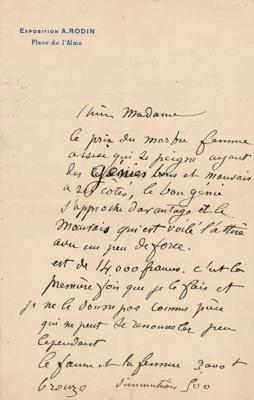 EXPOSITION A. RODIN
Place de l'Alma
Chère Madame
le prix du marbre femme
assise qui se peigne ayant
des génies bons et mauvais
a ses cotés, le bon génie
s'approche davantage et le
mauvais qui est voilé l'attire
avec un peu de force.
est de 14000 francs. c'est la
première fois que je le fais et
je ne le donne pas comme pièce
qui ne peut se renouveler peu
cependant
le faune et la femme 3000 f
bronze diminution 500